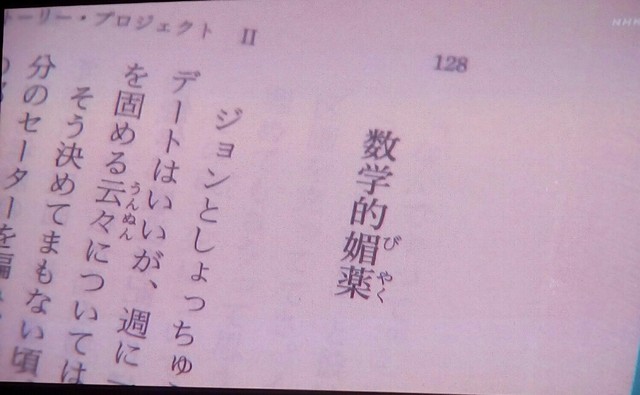 ーリー・プロジェクト II
128
NHK
数学的媚薬
びやく
ジョンとしょっちゅ
デートはいいが、週に
を固める云々については
うんぬん
そう決めてまもない頃
分のセーターを編